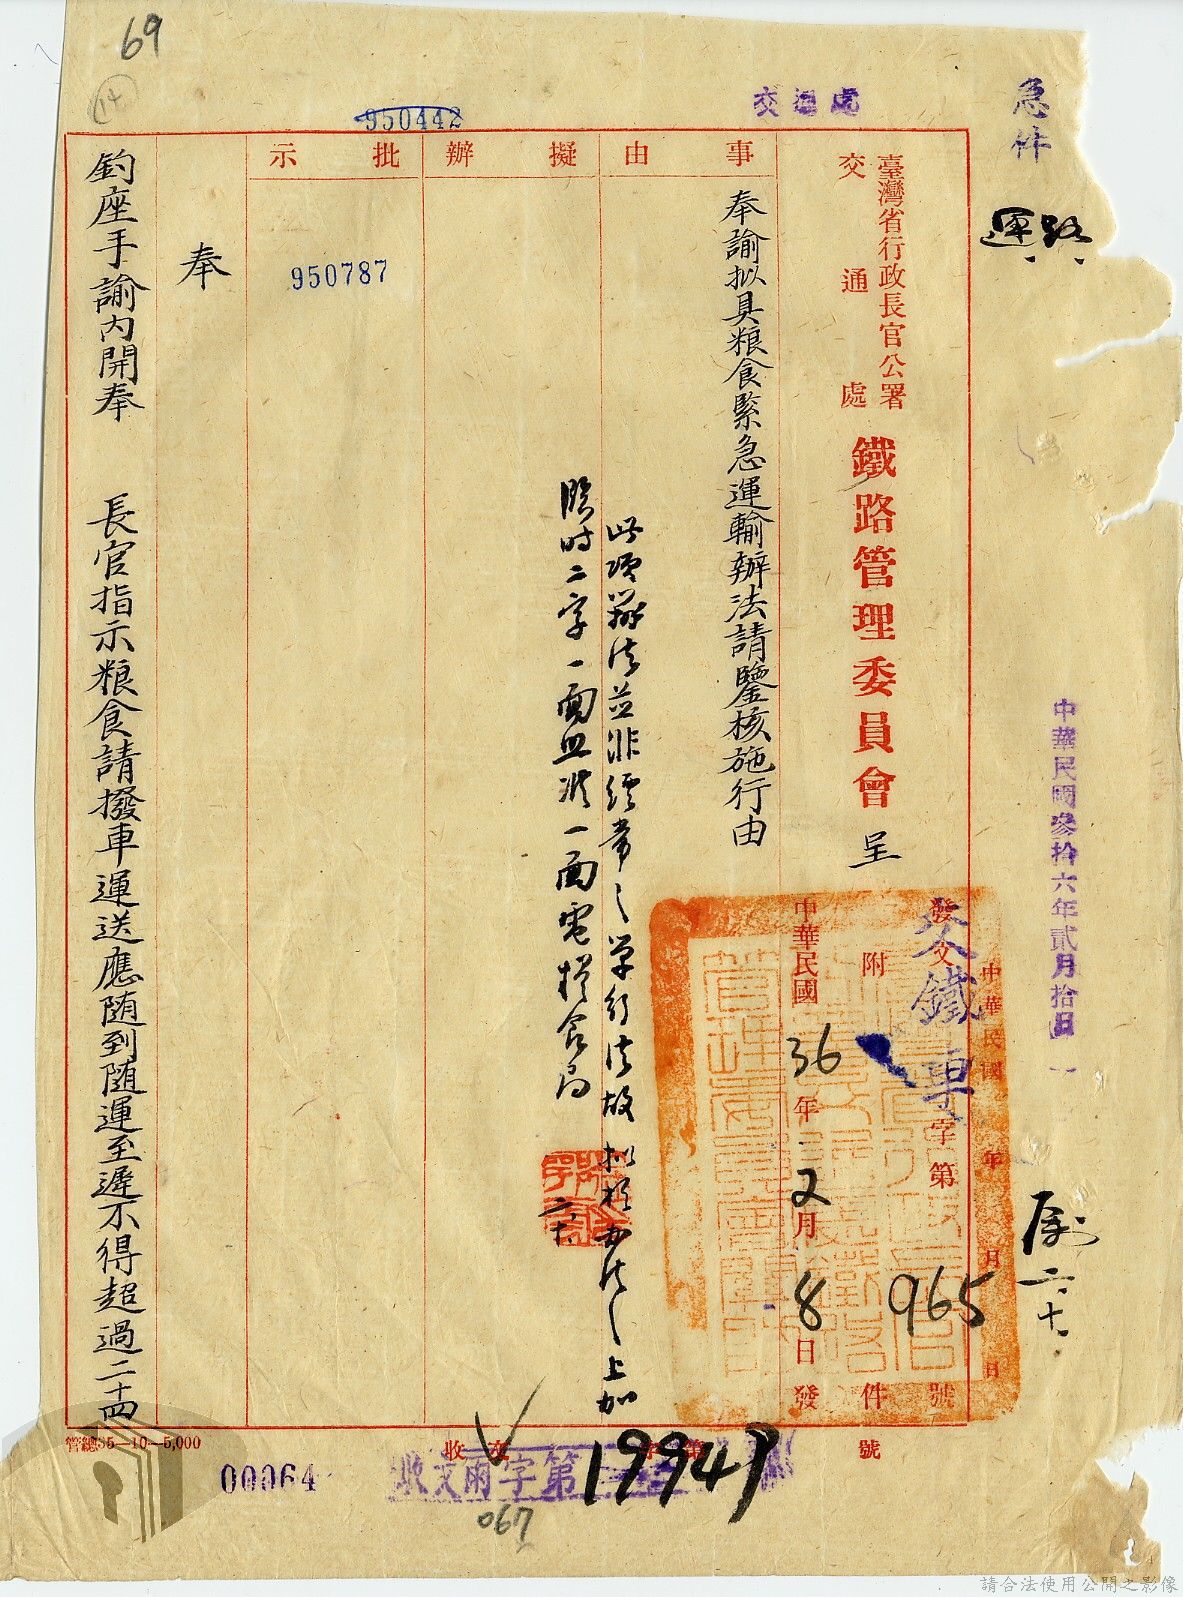 69
14
950442
交通處
急件
路
運
中華民國參拾六年貳月拾日
二、十、
臺灣省行政長官公署
交通處
鐵路管理委員會
呈
中華民國 年 月 日
發文
交鐵 字第 965 號
附 件 號
中華民國 36 年 2 月 8 日發
事由
擬辦
批示
奉諭拟具粮食緊急運輸辦法請鑒核施行由
此項辦法並非經常之單行法故拟於办法之上加
臨时二字一面照准一面電粮食局
二、十、
950787
奉
鈞座手諭內開奉 長官指示粮食請撥車運送應随到随運至遲不得超過二十四
管總35—10—5,000
00064
收文 字第
收文兩字第 19947
067
請合法使用公開之影像